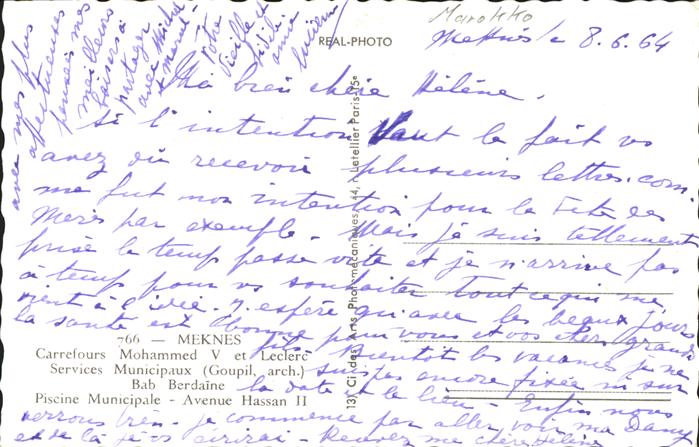 Marokko
Meknès le 8.6.64
REAL-PHOTO
Ma bien chère Hélène,
si l'intention vaut le fait vs
avez dû recevoir plusieurs lettres. com
me fut mon intention pour la Fête des
Mères par exemple. Mais je suis tellement
prise le temps passe vite et je n'arrive pas
à temps pour vs souhaiter tout ce qui me
vient à l'idée. J'espère qu'avec les beaux jours
la santé est bonne pour vous et vos chers grands
fils. Bientôt les vacances je ne
suis pas encore fixée ni sur
la date et le lieu - Enfin nous
verrons bien - je commence par aller voir ma
et de là je vs écrirai -
avec mes plus
affectueuses
pensées mes
meilleurs
baisers à
partager
avec Michel
et Marcel.
Votre
vieille et
amie
766 — MEKNES
Carrefours Mohammed V et Leclerc
Services Municipaux (Goupil, arch.)
Bab Berdaïne
Piscine Municipale - Avenue Hassan II
Arts Photomécaniques, 44, r. Letellier Paris 15e